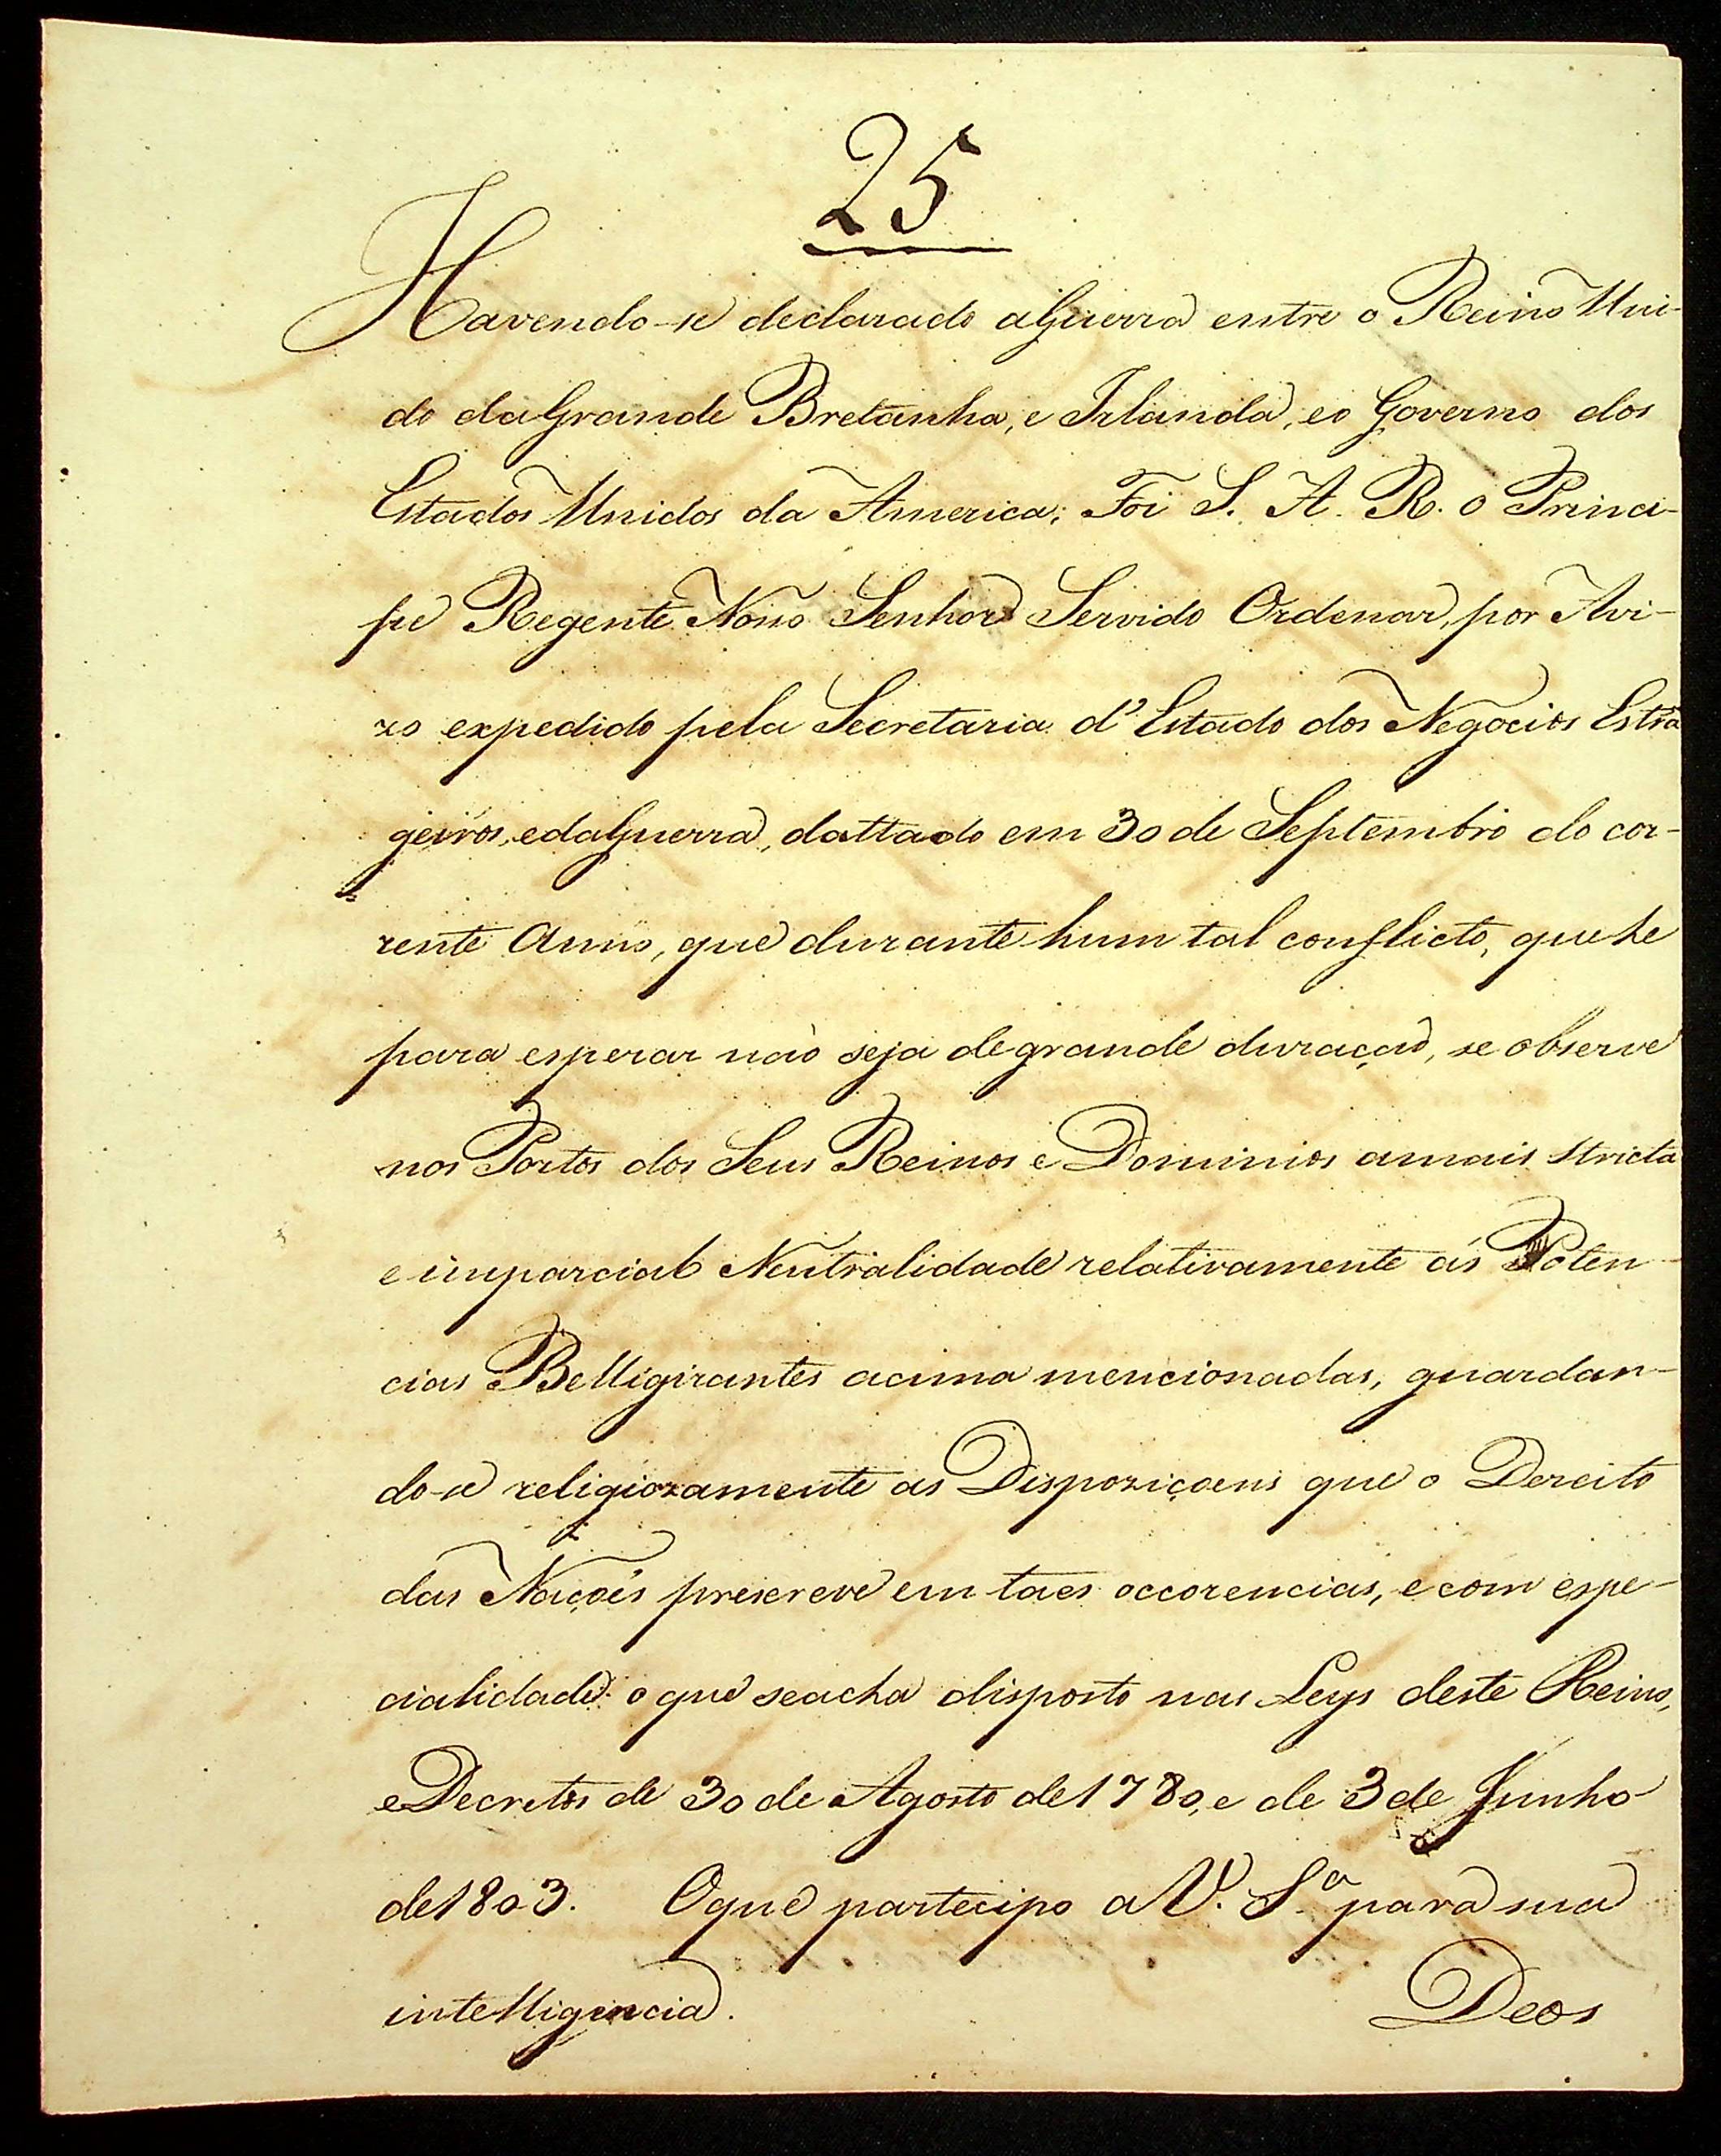 25
Havendo-se declarado a Guerra entre o Reino Uni-
do da Grande Bretanha, e Irlanda, e o Governo dos
Estados Unidos da America; Foi S. A. R. o Princi-
pe Regente Nosso Senhor Servido Ordenar, por Avi-
zo expedido pela Secretaria d'Estado dos Negocios Estrã
geiros, e da Guerra, dattado em 30 de Septembro do cor-
rente Anno, que durante hum tal conflicto, que he
para esperar não seja de grande duração, se observe
nos Portos dos Seus Reinos e Dominios a mais stricta
e imparcial Neutralidade relativamente ás Poten-
cias Belligirantes acima mencionadas, guardan-
do-se religiozamente as Dispoziçoens que o Dereito
das Naçoẽs prescreve em taes occorencias, e com espe-
cialidade o que se acha disposto nas Leys deste Reino,
e Decretos de 30 de Agosto de 1780, e de 3 de Junho
de 1803. O que partecipo a V. Sª para sua
intelligencia.
Deos